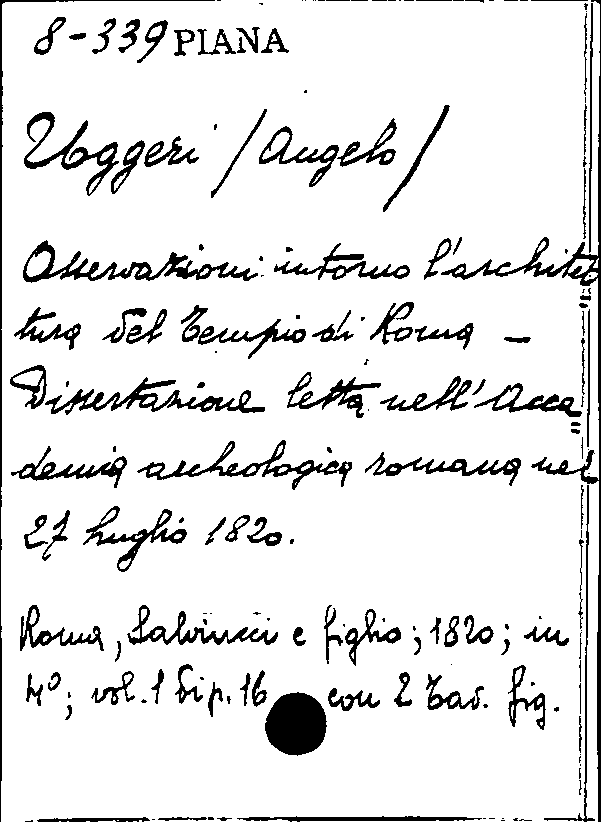 8-339 PIANA
Uggeri / Angelo /
Osservazioni intorno l'architet=
tura del Tempio di Roma —
Dissertazione letta nell'Acca=
demia archeologica romana nel
27 luglio 1820.
Roma, Salviucci e figlio; 1820; in
4°; vol. 1 di p. 16 con 2 Tav. fig.